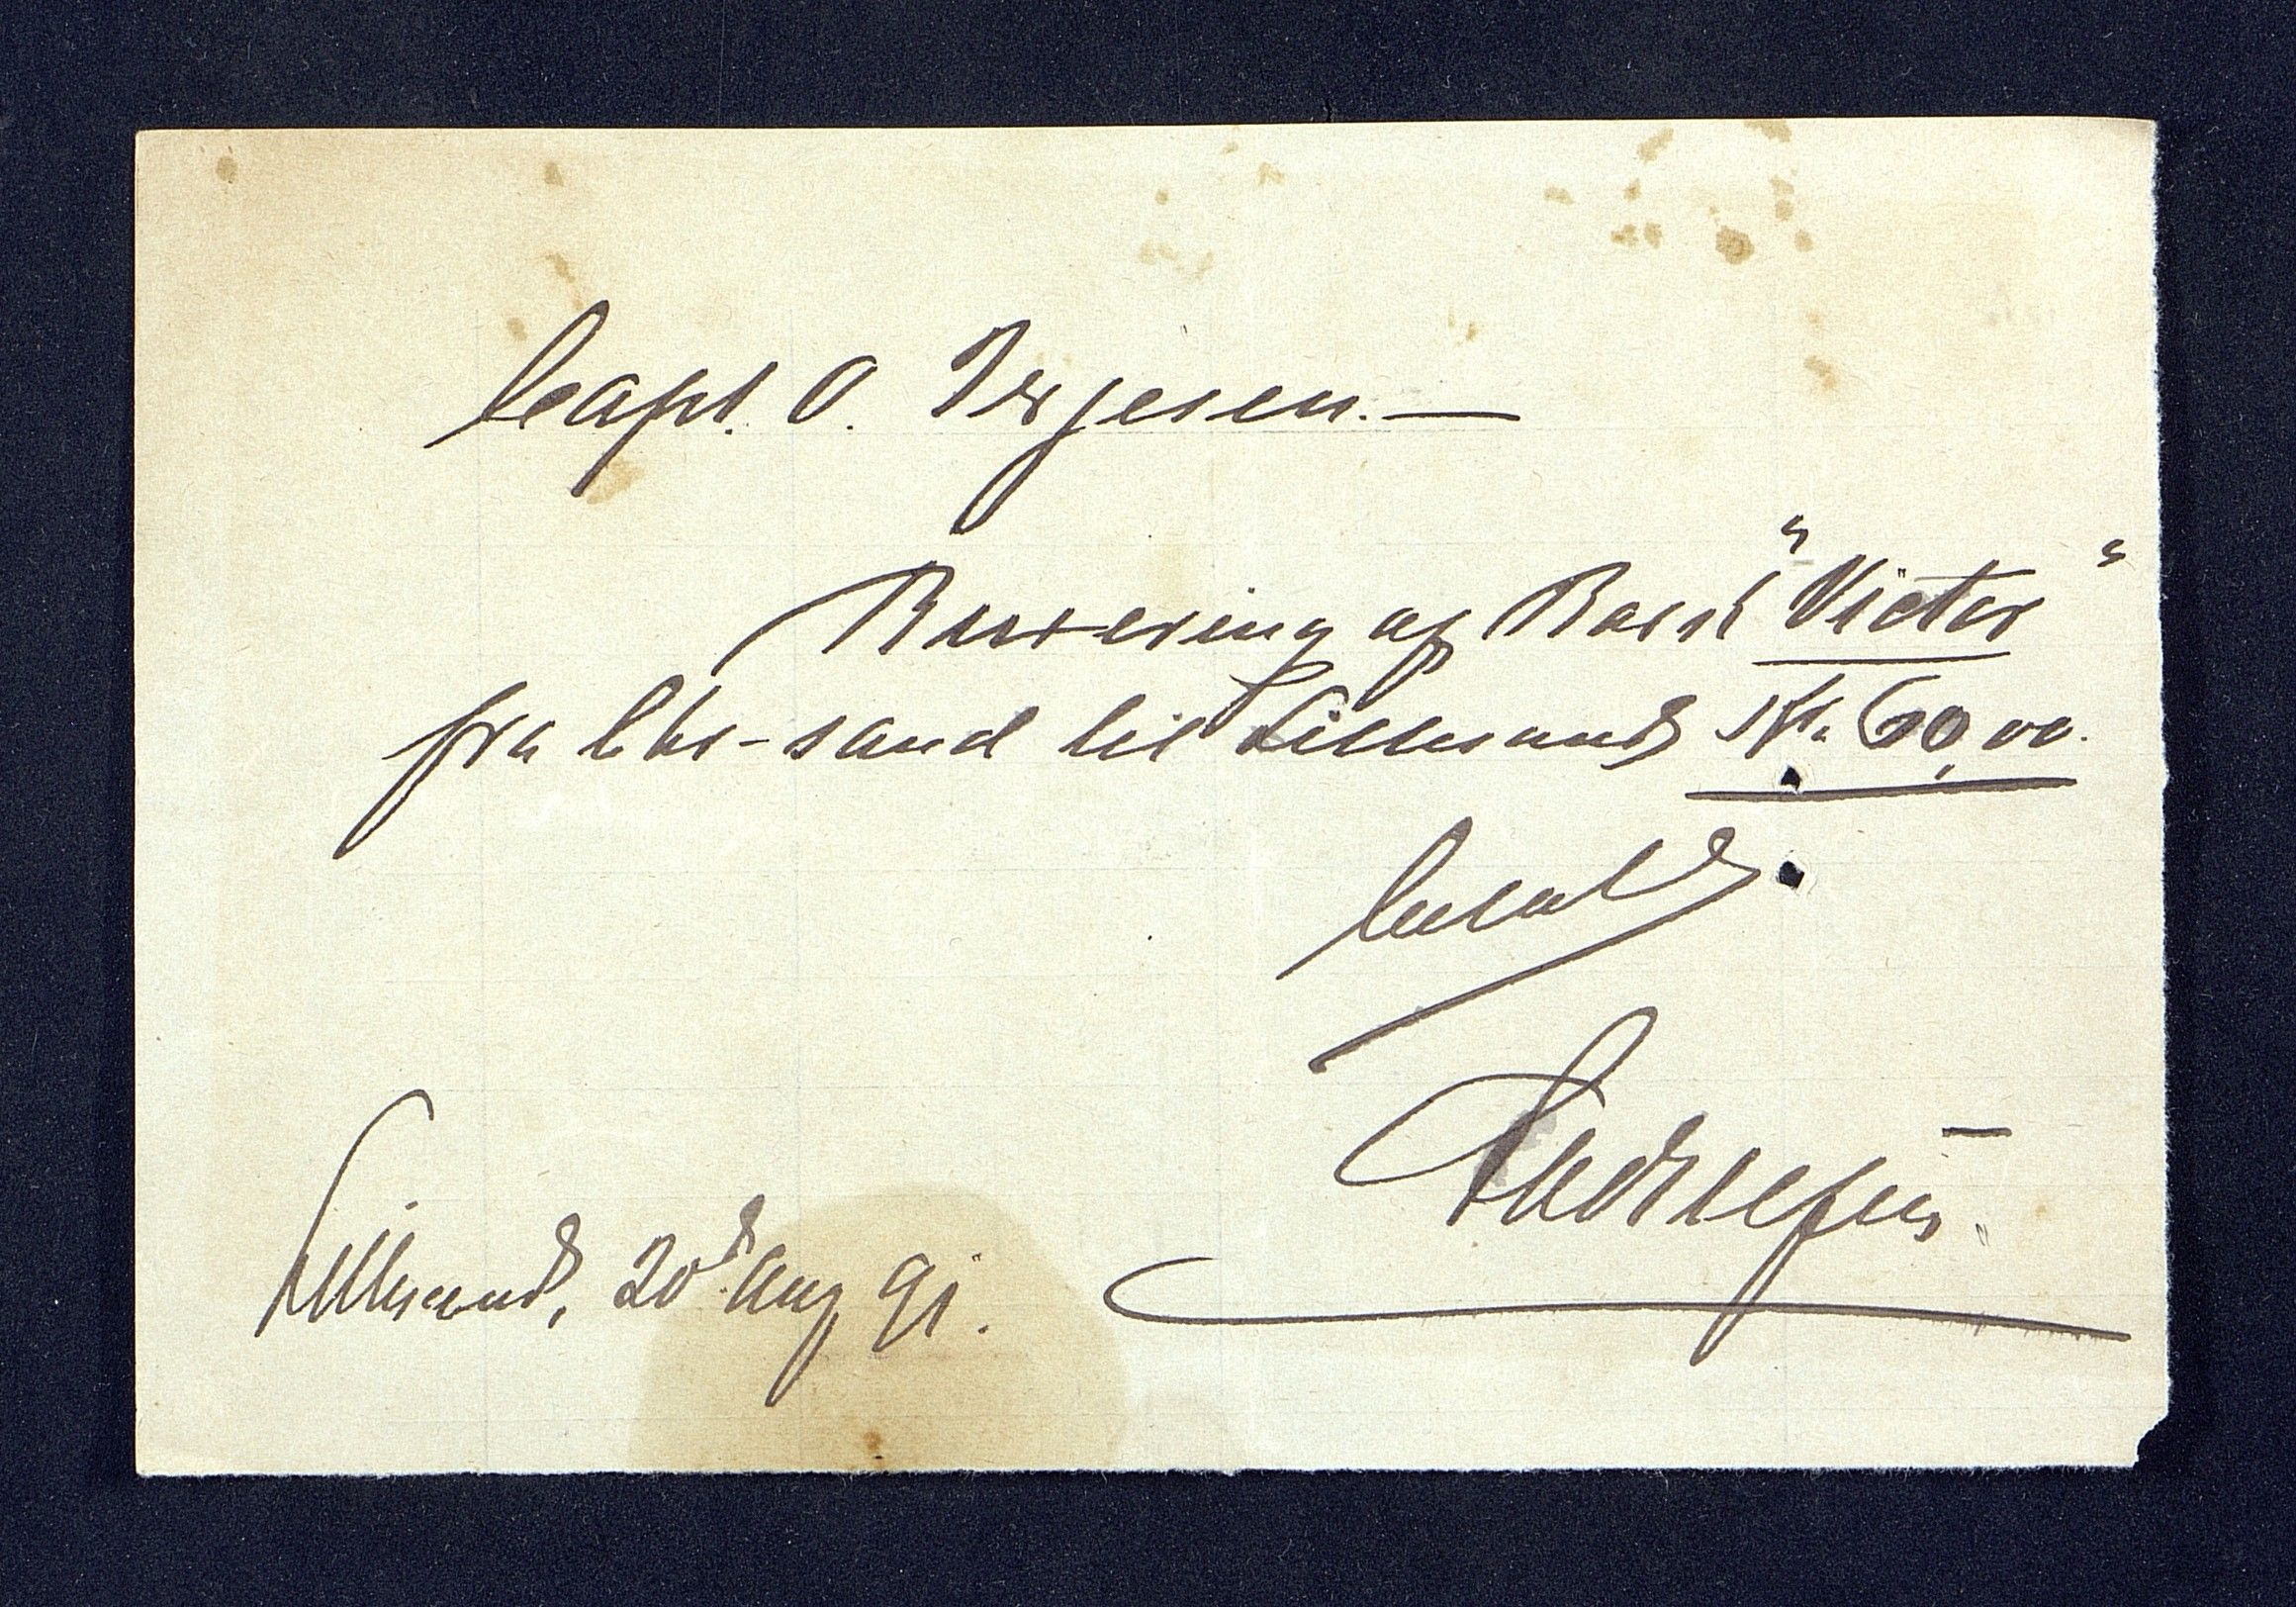 Capt. O. Terjesen. —
Buxering af Bark "Victor"
fra Chr-sand til Lillesand Kr. 60,00.
betalt
Lillesand, 20d Aug 91.